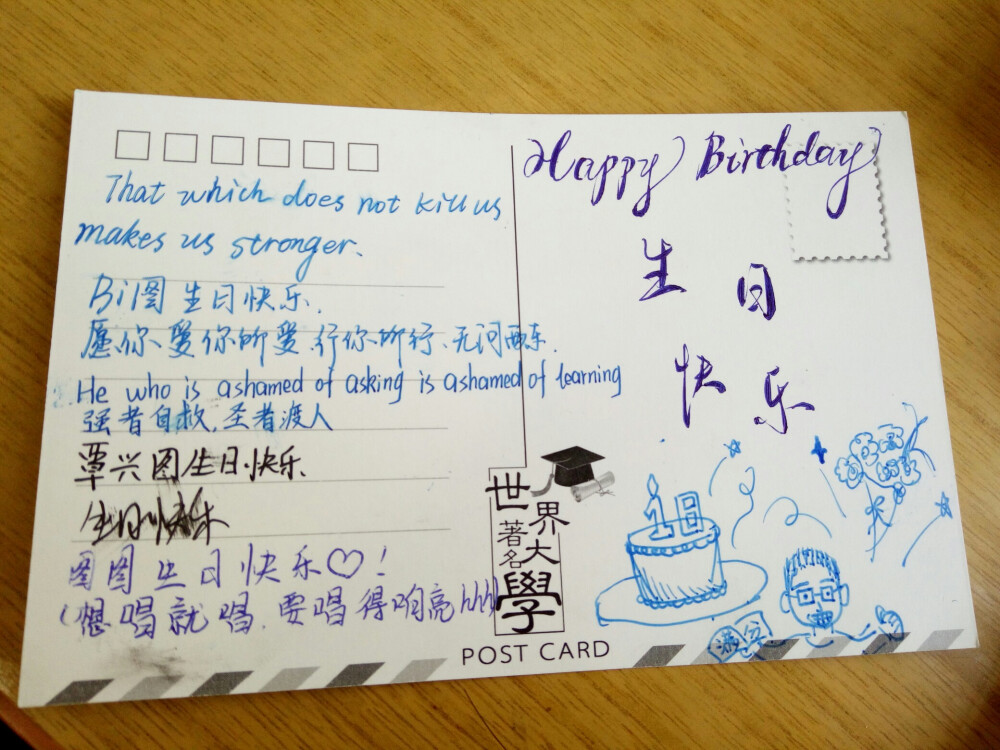 That which does not kill us
makes us stronger.
Bi图 生日快乐.
愿你爱你所爱.行你所行.无问西东.
He who is ashamed of asking is ashamed of learning
强者自救,圣者渡人
覃兴图生日快乐.
生日快乐
图图生日快乐♡!
(想唱就唱.要唱得响亮hhh)
Happy Birthday
生日
快乐
18
满分
世界
著名
大學
POST CARD